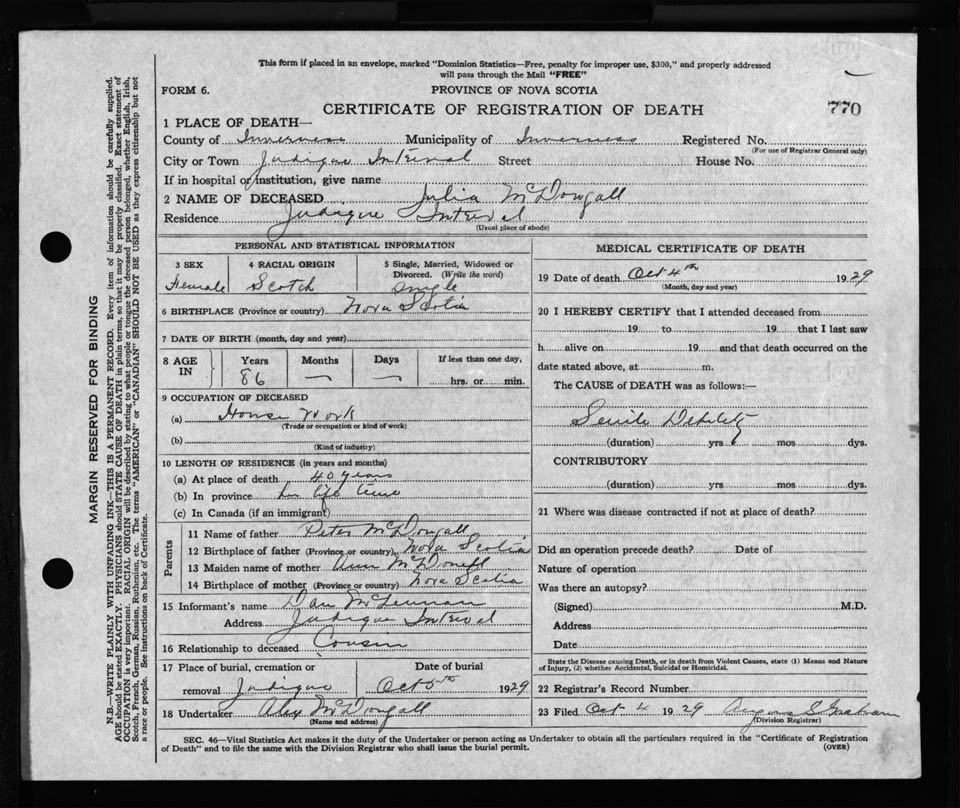 This form if placed in an envelope, marked "Dominion Statistics—Free, penalty for improper use, $300," and properly addressed
will pass through the Mail "FREE"
FORM 6.
PROVINCE OF NOVA SCOTIA
CERTIFICATE OF REGISTRATION OF DEATH
770
1 PLACE OF DEATH—
County of Inverness Municipality of Inverness Registered No.
(For use of Registrar General only)
City or Town Judique Interval Street House No.
If in hospital or institution, give name
2 NAME OF DECEASED Julia McDougall
Residence Judique Interval
(Usual place of abode)
PERSONAL AND STATISTICAL INFORMATION
3 SEX 4 RACIAL ORIGIN 5 Single, Married, Widowed or
Divorced. (Write the word)
Female Scotch Single
6 BIRTHPLACE (Province or country) Nova Scotia
7 DATE OF BIRTH (month, day and year)
8 AGE IN Years Months Days If less than one day,
86 — — hrs. or min.
9 OCCUPATION OF DECEASED
(a) House Work
(Trade or occupation or kind of work)
(b)
(Kind of industry)
10 LENGTH OF RESIDENCE (in years and months)
(a) At place of death 40 years
(b) In province her life time
(c) In Canada (if an immigrant)
Parents
11 Name of father Peter McDougall
12 Birthplace of father (Province or country) Nova Scotia
13 Maiden name of mother Ann
14 Birthplace of mother (Province or country) Nova Scotia
15 Informant's name Dan McLennan
Address Judique Interval
16 Relationship to deceased Cousin
17 Place of burial, cremation or Date of burial
removal Judique Oct 5th 1929
18 Undertaker Alex McDougall
(Name and address)
MEDICAL CERTIFICATE OF DEATH
19 Date of death Oct 4th 1929
(Month, day and year)
20 I HEREBY CERTIFY that I attended deceased from
19 to 19 that I last saw
h alive on 19 and that death occurred on the
date stated above, at m.
The CAUSE of DEATH was as follows:—
Senile Debility
(duration) yrs mos dys.
CONTRIBUTORY
(duration) yrs mos dys.
21 Where was disease contracted if not at place of death?
Did an operation precede death? Date of
Nature of operation
Was there an autopsy?
(Signed) M.D.
Address
Date
State the Disease causing Death, or in death from Violent Causes, state (1) Means and Nature
of Injury, (2) whether Accidental, Suicidal or Homicidal.
22 Registrar's Record Number
23 Filed Oct 4 1929 Angus S Graham
(Division Registrar)
SEC. 46—Vital Statistics Act makes it the duty of the Undertaker or person acting as Undertaker to obtain all the particulars required in the "Certificate of Registration
of Death" and to file the same with the Division Registrar who shall issue the burial permit.
(OVER)
MARGIN RESERVED FOR BINDING
N.B.—WRITE PLAINLY WITH UNFADING INK—THIS IS A PERMANENT RECORD. Every item of information should be carefully supplied.
AGE should be stated EXACTLY. PHYSICIANS should STATE CAUSE OF DEATH in plain terms, so that it may be properly classified. Exact statement of
OCCUPATION is very important. RACIAL ORIGIN will be described by stating to what people or tongue the deceased person belonged, whether English, Irish,
Scotch, French, German, Russian, Ruthenian, etc. The terms "AMERICAN" or "CANADIAN" SHOULD NOT BE USED as they express citizenship but not
a race or people. See instructions on back of Certificate.